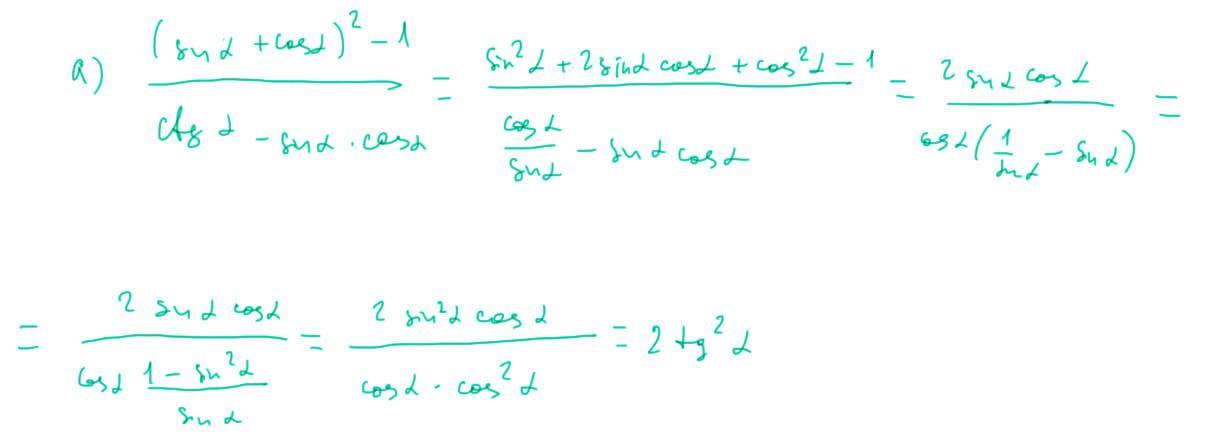 a) \frac{(sin α + cos α)^2 - 1}{ctg α - sin α · cos α} = \frac{sin^2 α + 2 sin α cos α + cos^2 α - 1}{\frac{cos α}{sin α} - sin α cos α} = \frac{2 sin α cos α}{cos α (\frac{1}{sin α} - sin α)} =
= \frac{2 sin α cos α}{cos α \frac{1 - sin^2 α}{sin α}} = \frac{2 sin^2 α cos α}{cos α · cos^2 α} = 2 tg^2 α